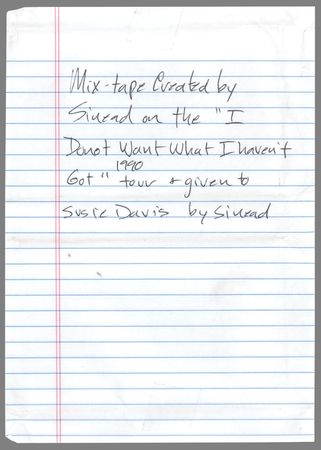 Mix-tape Created by
Sinead on the "I
Do not Want What I haven't
1990
Got" tour + given to
Susie Davis by Sinead